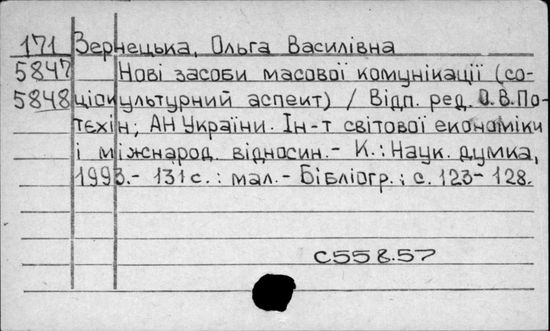 171 Зернецька, Ольга Василівна
5847 Нові засоби масової комунікації (со-
5848 ціокультурний аспект) / Відп. ред. О.В.По-
тєхін; АН України. Ін-т світової економіки
і міжнарод. відносин.- К.: Наук. думка,
1993.- 131с.: мал.- Бібліогр.: с. 123- 128.
С558.57